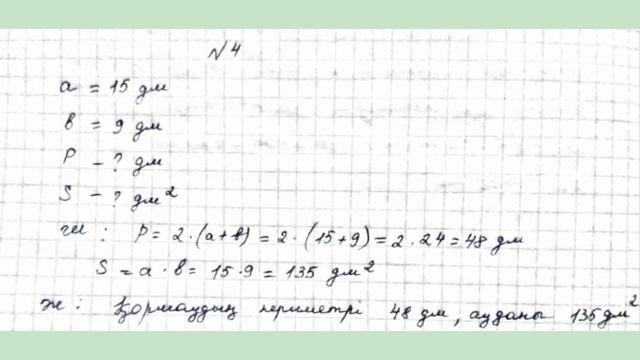 № 4
a = 15 дм
b = 9 дм
P - ? дм
S - ? дм²
ш : P = 2·(a+b) = 2·(15+9) = 2·24 = 48 дм
S = a·b = 15·9 = 135 дм²
ж : Қормаудың периметрі 48 дм, ауданы 135 дм²